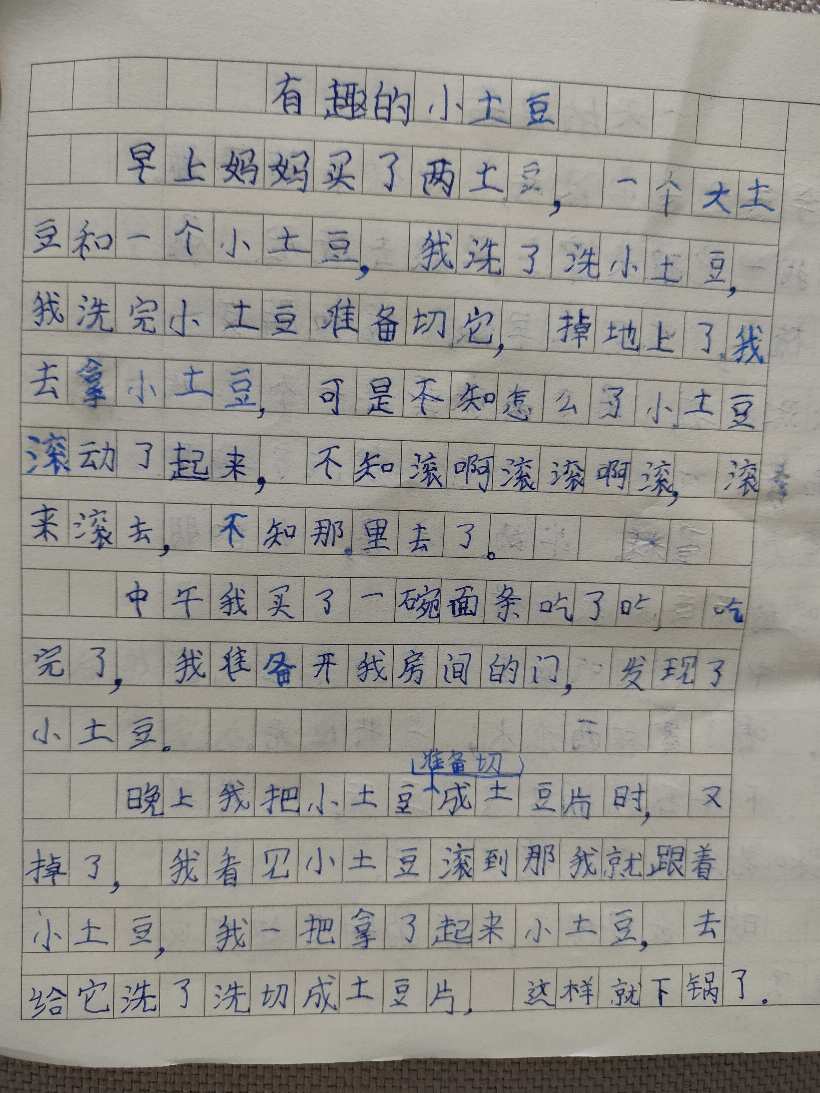 有趣的小土豆
早上妈妈买了两土豆，一个大土
豆和一个小土豆，我洗了洗小土豆，
我洗完小土豆准备切它，掉地上了，我
去拿小土豆，可是不知怎么了小土豆
滚动了起来，不知滚啊滚滚啊滚，滚
来滚去，不知那里去了。
中午我买了一碗面条吃了吃，吃
完了，我准备开我房间的门，发现了
小土豆。
准备切
晚上我把小土豆成土豆片时，又
掉了，我看见小土豆滚到那我就跟着
小土豆，我一把拿了起来小土豆，去
给它洗了洗切成土豆片，这样就下锅了。